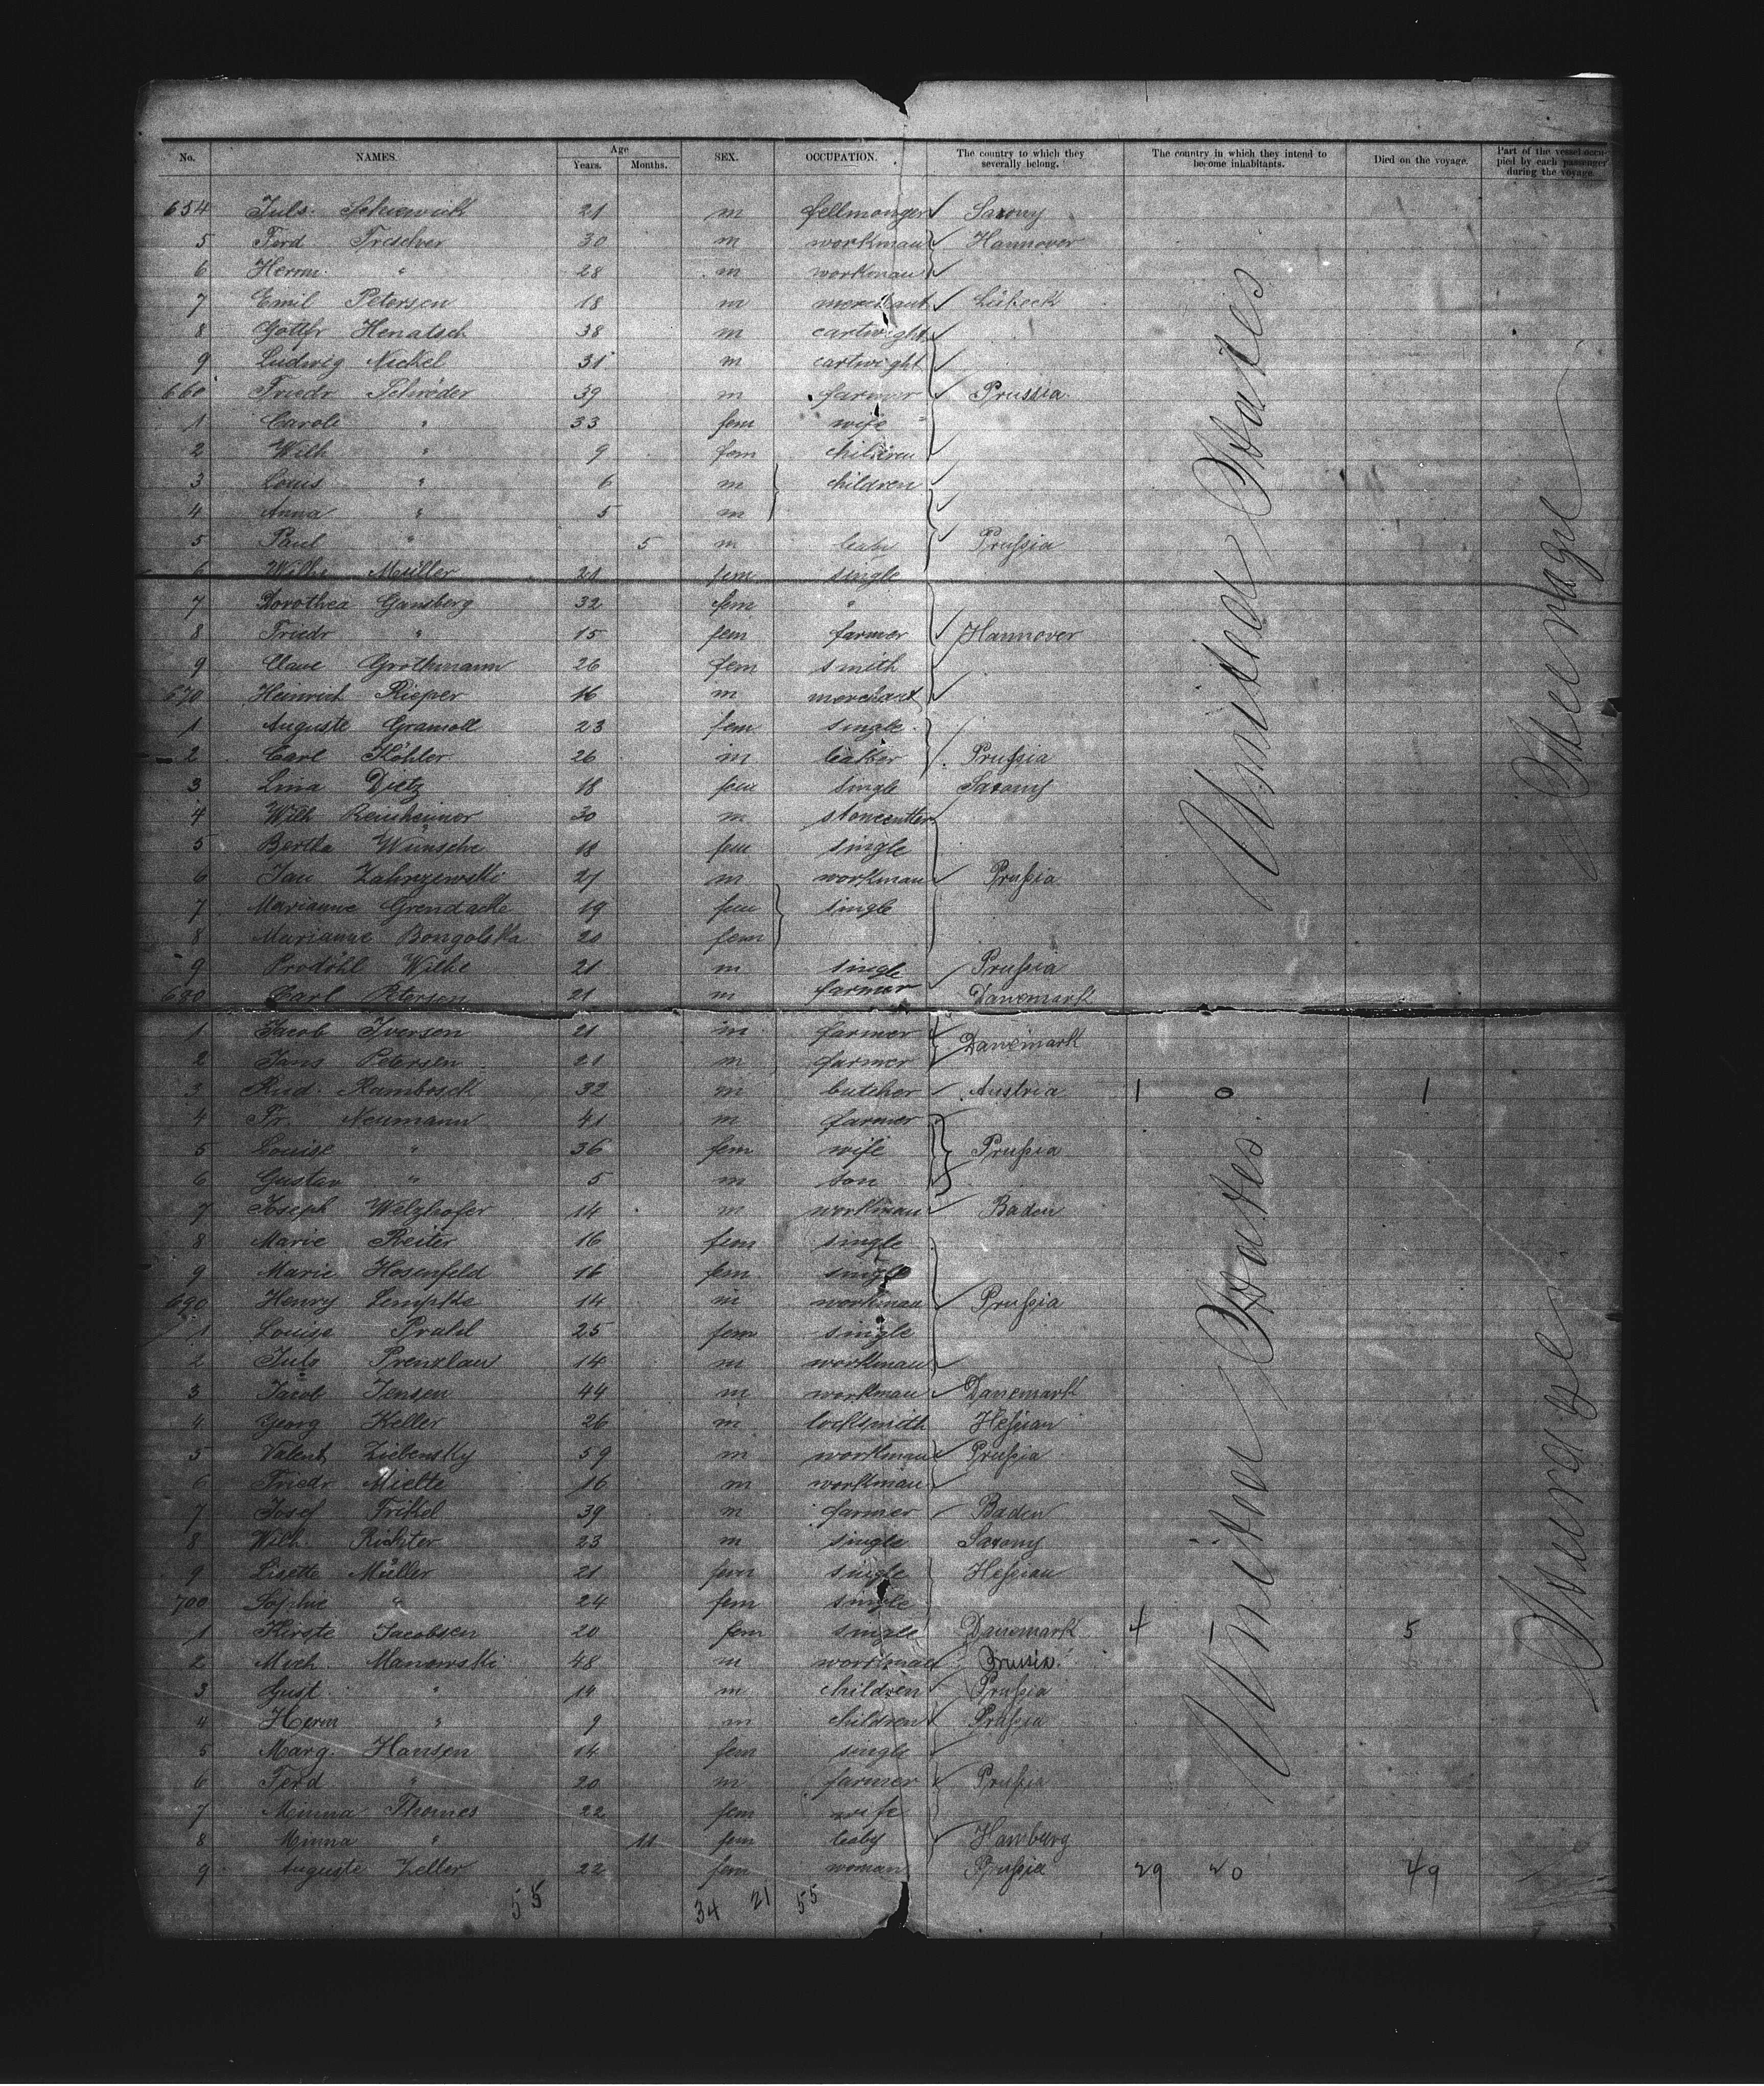 No. NAMES. Age Years. Months. SEX. OCCUPATION. The country to which they severally belong. The country in which they intend to become inhabitants. Died on the voyage. Part of the vessel occupied by each passenger during the voyage.
654 Juls. 21 m fellmonger Saxony
5 Ferd Trescher 30 m workman Hannover
6 Herm. " 28 m workman
7 Emil Petersen 18 m merchant Lübeck
8 Gottfr Henatsch 38 m cartwight
9 Ludwig Nickel 31 m cartwight
660 Friedr Schröder 39 m farmer Prussia
1 Carole " 33 fem wife
2 Wilh " 9 fem children
3 Louis " 6 m children
4 Anna " 5 m
5 Paul " 5 m baby Prußia
6 Wilhe Müller 21 fem single
7 Dorothea Gansberg 32 fem "
8 Friedr " 15 fem farmer Hannover
9 Claus Grothmann 26 fem smith
670 Heinrich Rieper 16 m merchant
1 Auguste Gramoll 23 fem single
2 Carl Köhler 26 m Prußia
3 Lina Dietz 18 fem single Saxony
4 Wilh Reinheimer 30 m stonecutter
5 Bertha Wünsche 18 fem single
6 Jan Zahrzewski 27 m workman Prußia
7 Marianne 19 fem single
8 Marianne Bongolska 20 fem
9 Prodöhl Wilhe 21 m single Prußia
680 Carl Petersen 21 m farmer Danemark
1 Jacob Iversen 21 m farmer Danemark
2 Jans Petersen 21 m farmer
3 Rud. Rambosck 32 m butcher Austria 1 0 1
4 Fr. Neumann 41 m farmer
5 Louise " 36 fem wife Prußia
6 Gustav " 5 m son
7 Joseph Welzhofer 14 m workman Baden
8 Marie Reiter 16 fem single
9 Marie Hosenfeld 16 fem single
690 Henry Lempke 14 m workman Prußia
1 Louise Prahl 25 fem single
2 Juls Prenzlau 14 m workman
3 Jacob Jensen 44 m workman Danemark
4 Georg Keller 26 m locksmith Heßian
5 Valent Ziebensky 59 m workman Prußia
6 Friedr Mielte 16 m workman
7 Josef Frikel 39 m farmer Baden
8 Wilh. Richter 23 m single Saxony
9 Lisette Müller 21 fem single Heßian
700 Sophie " 24 fem single
1 Kirste Jacobsen 20 fem single Danemark 4 1 5
2 Mich. Manowski 48 m workman Prussia
3 Gust. " 14 m children Prußia
4 Herm " 9 m children Prußia
5 Marg. Hansen 14 fem single
6 Ferd " 20 m farmer Prußia
7 Minna Thomes 22 fem wife
8 Minna " 11 fem baby Hamburg
9 Auguste Zeller 22 fem woman Prußia 29 20 49
55 34 21 55
United States
Steerage
United States
Steerage